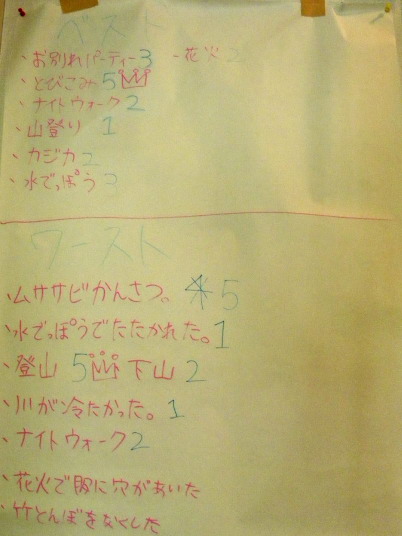 ベスト
・お別れパーティー3 ・花火2
・とびこみ5
・ナイトウォーク2
・山登り 1
・カジカ2
・水でっぽう3
ワースト
・ムササビかんさつ。 5
・水でっぽうでたたかれた。1
・登山 5 下山 2
・川が冷たかった。1
・ナイトウォーク2
・花火で服に穴があいた
・竹とんぼをなくした